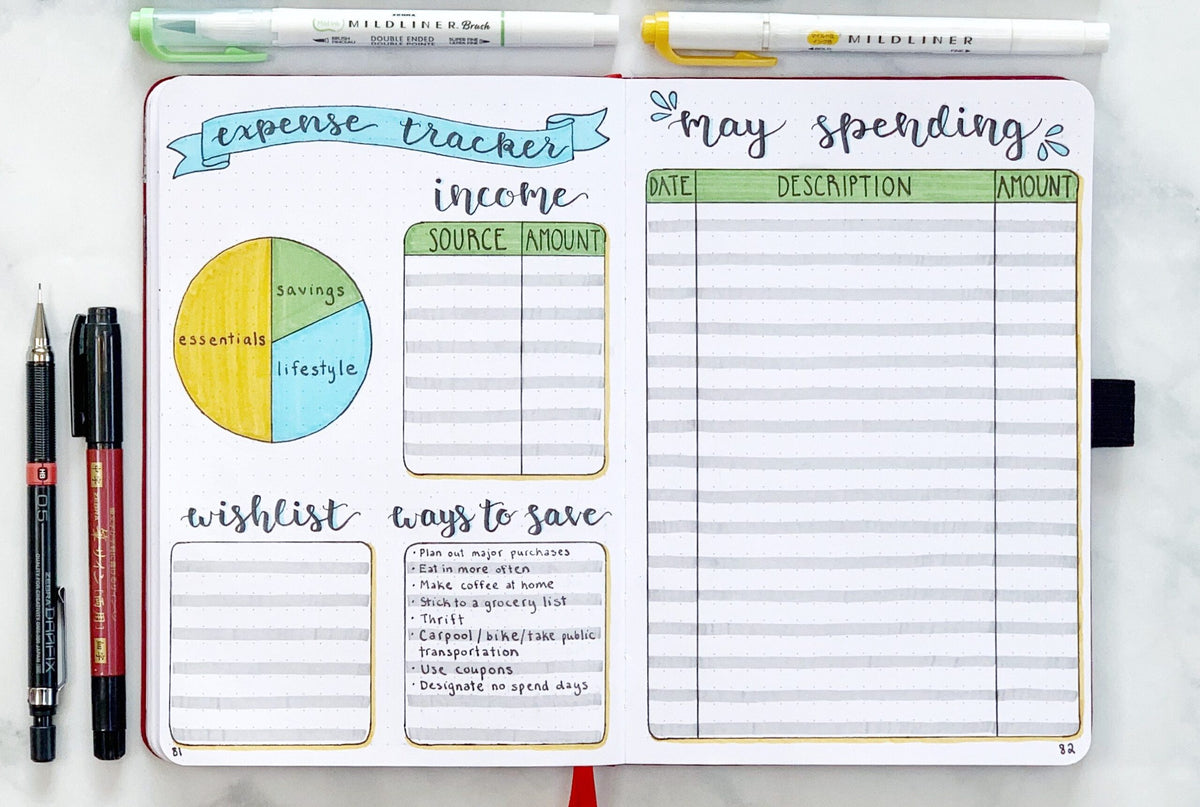 ZEBRA
MILDLINER Brush
DOUBLE ENDED
DOUBLE POINTE
MILDLINER
expense tracker
may spending
DATE DESCRIPTION AMOUNT
income
SOURCE AMOUNT
savings
essentials
lifestyle
wishlist
ways to save
• Plan out major purchases
• Eat in more often
• Make coffee at home
• Stick to a grocery list
• Thrift
• Carpool/bike/take public
transportation
• Use coupons
• Designate no spend days
81
82
HB
0.5
ZEBRA DRAFIX